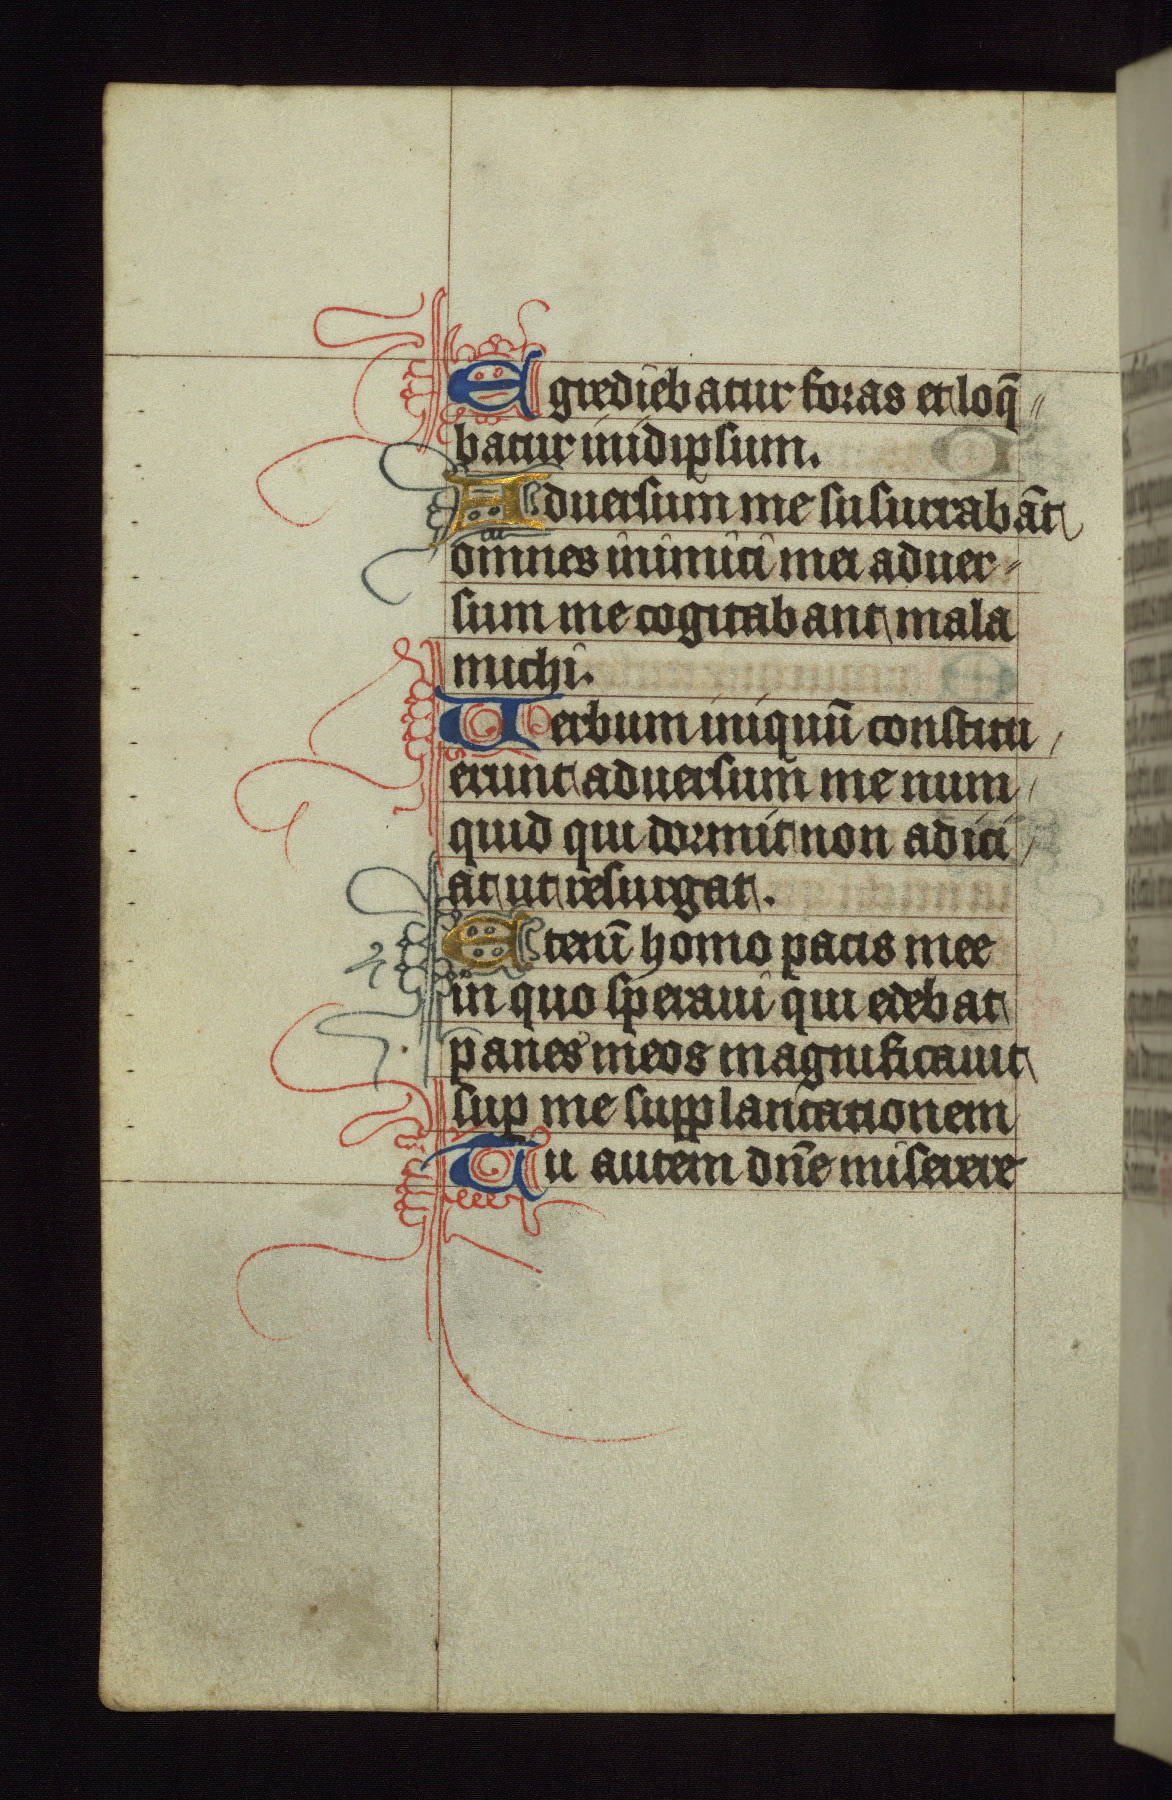 Egrediebatur foras et loq̄
batur inidipsum.
Aduersum me susurrabāt
omnes inimici mei aduer
sum me cogitabant mala
michi.
Uerbum iniquū constitu
erunt aduersum me num
quid qui dormit non adici
at ut resurgat.
Etenī homo pacis mee
in quo speraui qui edebat
panes meos magnificauit
sup me supplantationem
Tu autem dn̄e miserere